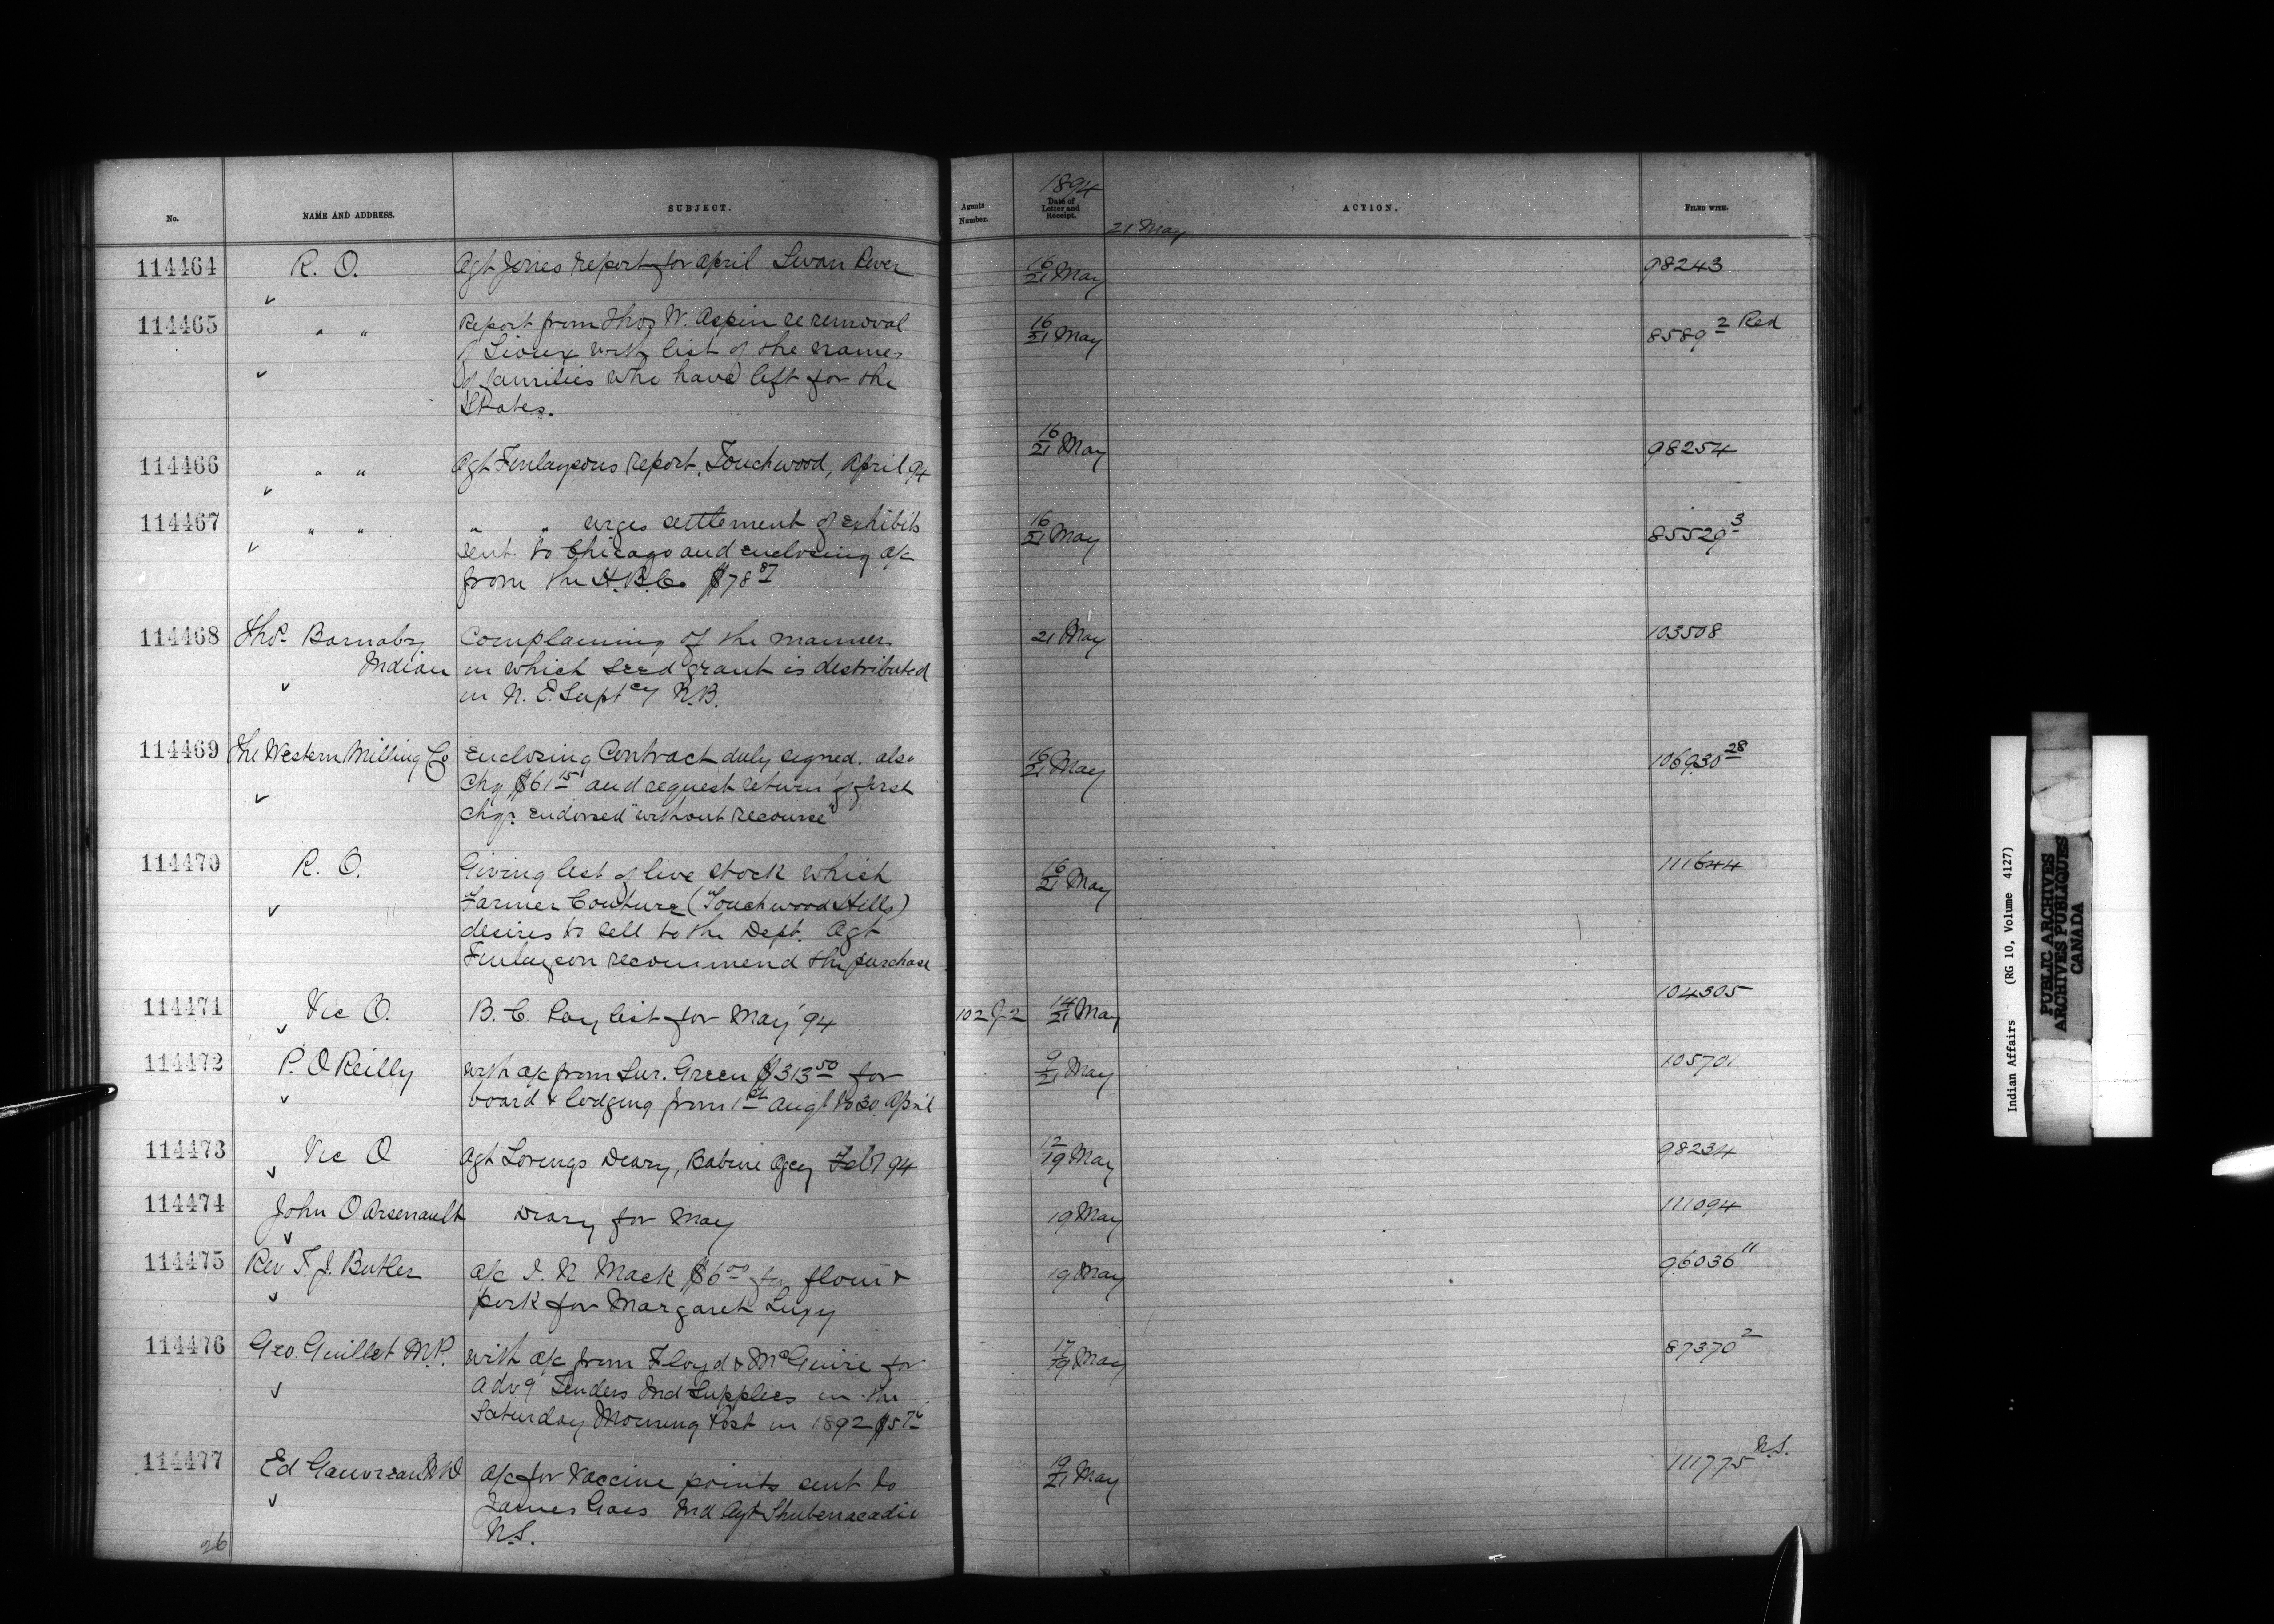 No. NAME AND ADDRESS. SUBJECT. Agents Number. 1894 Date of Letter and Receipt. ACTION. FILED WITH.
21 May
114464 R. O. Agt Jones report for April Swan River 16/21 May 98243
114465 " " Report from Thos W. Aspin re removal 16/21 May 8589 2 Red
of Sioux with list of the names
of families who have left for the
States.
114466 " " Agt Finlaysons report, Touchwood, April 94 16/21 May 98254
114467 " " " " urges settlement of exhibits 16/21 May 85529 3
sent to Chicago and enclosing a/c
from the H.B.Co $78 87
114468 Thos. Barnaby Complaining of the manner 21 May 103508
Indian in which seed grant is distributed
in N. E. Suptcy N.B.
114469 The Western Milling Co Enclosing Contract duly signed. also 16/21 May 106930 28
Chq $61 15 and request return of first
chq. endorsed "without recourse"
114470 R. O. Giving list of live stock which 16/21 May 111644
Farmer Couture (Touchwood Hills)
desires to sell to the Dept. Agt
Finlayson recommend the purchase
114471 Vic O. B. C. Pay list for May '94 102 J-2 14/21 May 104305
114472 P. O Reilly with a/c from Sur. Green $313 50 for 9/21 May 105701
board & lodging from 1st Augt to 30 April
114473 Vic O Agt Lorings Diary, Babine Agcy Feby 94 12/19 May 98234
114474 John O Arsenault Diary for May 19 May 111094
114475 Rev T. J. Butler a/c I. N Mack $6 00 for flour & 19 May 96036 11
pork for Margaret Luxy
114476 Geo. Guillet M.P. with a/c from Floyd & McGuire for 17/19 May 87370 2
advg Tenders Ind Supplies in the
Saturday Morning Post in 1892
114477 Ed Gauvreau MD a/c for Vaccine points sent to 19/21 May 111775 N.S.
James Gass Ind Agt Shubenacadie
N.S.
26
Indian Affairs (RG 10, Volume 4127)
PUBLIC ARCHIVES
ARCHIVES PUBLIQUES
CANADA